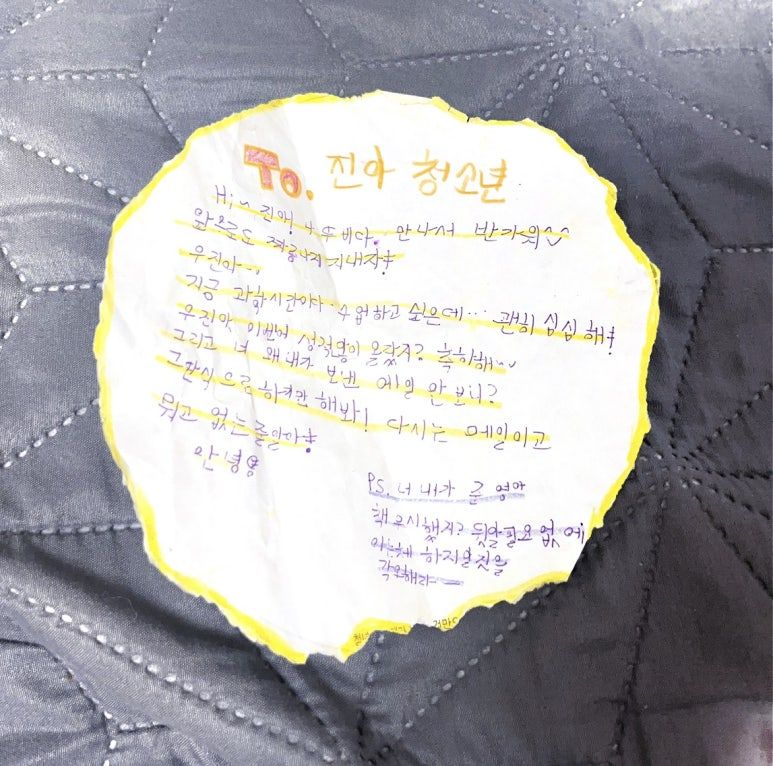 To. 진아 청소년
Hi~ 진애! 나 두비다. 만나서 반가워~
앞으로도 지내자!
우진아~,
지금 과학시간이다 수업하고 싶은데… 괜히 심심해!
우진앗 이번에 성적많이 올랐지? 축하해~
그리고 너 왜내가 보낸 메일 안 보니?
그딴식으로 하기만 해봐! 다시는 메일이고
뭐고 없는줄알아!
안녕용
PS. 너 내가 준 영아
책 무시했지? 뒷말필요없에
하지 것을
각오해라—